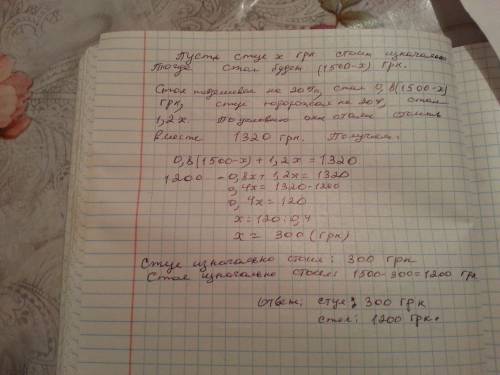 Пусть стул х грн стоил изначально
Тогда стол будет (1500-х) грн.
Стол подешевел на 20%, стал 0,8(1500-х)
грн, стул подорожал на 20%, стал
1,2х. По условию они стали стоить
вместе 1320 грн. Получаем:
0,8(1500-х)+1,2х=1320
1200 -0,8х+1,2х=1320
0,4х=1320-1200
0,4х=120
х=120:0,4
х= 300(грн)
Стул изначально стоил: 300 грн
Стол изначально стоил: 1500-300=1200 грн
Ответ: стул: 300 грн
стол: 1200 грн.